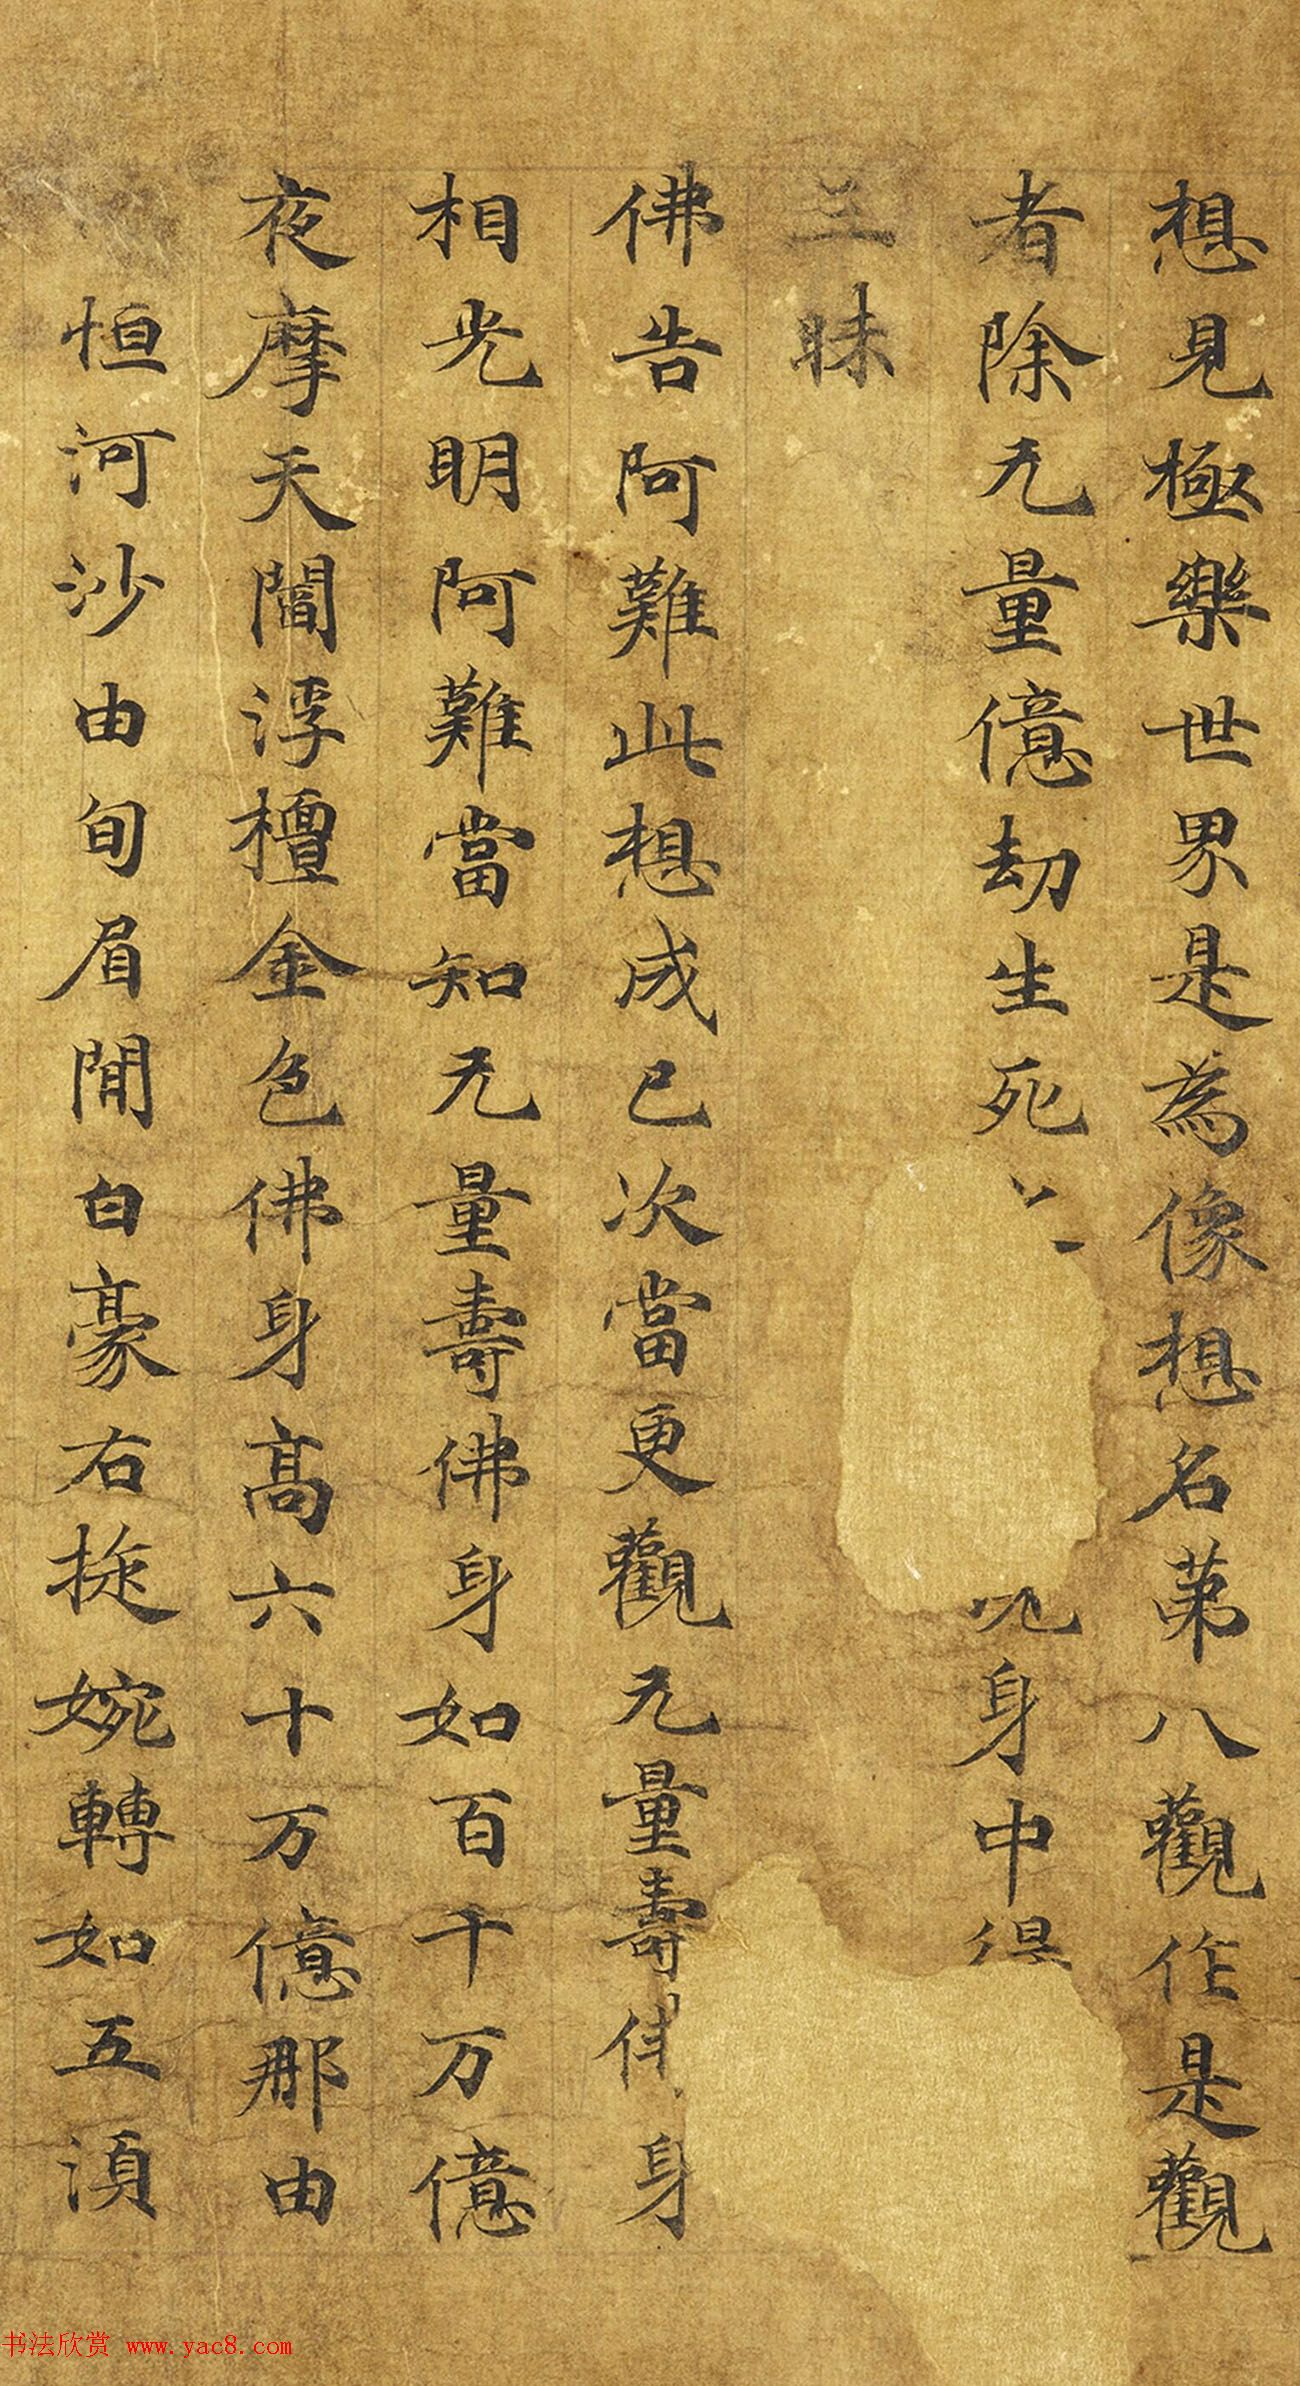 想見極樂世界是為像想名第八觀作是觀
者除无量億劫生死身中得
三昧
佛告阿難此想成已次當更觀无量壽佛身
相光明阿難當知无量壽佛身如百千万億
夜摩天閻浮檀金色佛身高六十万億那由
恒河沙由旬眉閒白豪右旋婉轉如五須
书法欣赏 www.yac8.com